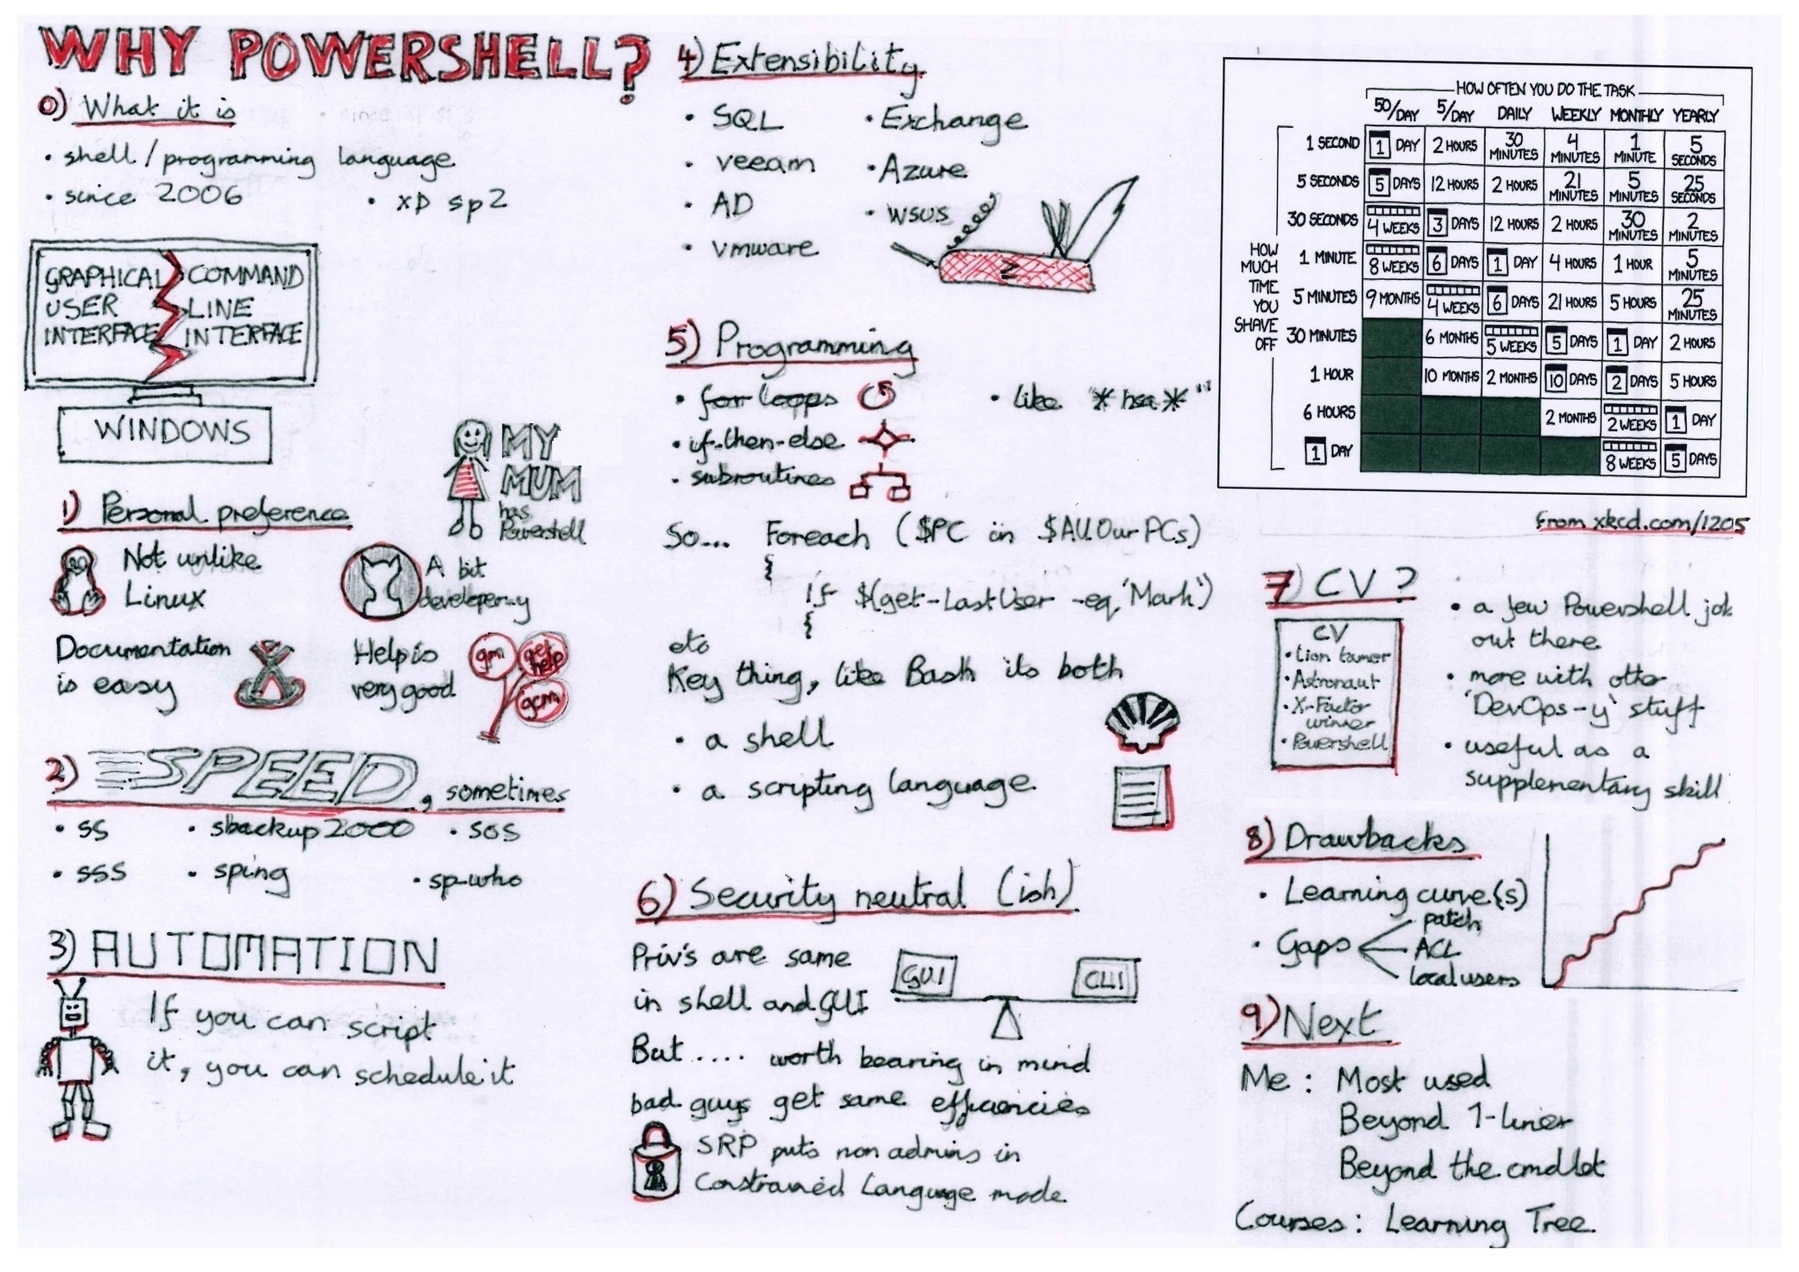 WHY POWERSHELL?
0) What it is
• shell/programming language
• since 2006
• xp sp2
GRAPHICAL USER INTERFACE
COMMAND LINE INTERFACE
WINDOWS
MY
MUM
has
Powershell
1) Personal preference
Not unlike
Linux
A bit
developer-y
Documentation
is easy
Help is
very good
gm
get help
gcm
2) SPEED, sometimes
• ss
• sbackup2000
• sos
• sss
• sping
• sp-who
3) AUTOMATION
If you can script
it, you can schedule it
4) Extensibility
• SQL
• Exchange
• veeam
• Azure
• AD
• wsus
• vmware
5) Programming
• for loops
• like *hsa*
• if-then-else
• subroutines
So... Foreach ($PC in $AllOurPCs)
{
If $(get-LastUser -eq 'Mark')
{
etc
Key thing, like Bash its both
• a shell
• a scripting language
6) Security neutral (ish)
Priv's are same
in shell and GUI
GUI
CLI
But.... worth bearing in mind
bad guys get same efficiencies
SRP puts non admins in
Constrained Language mode
HOW OFTEN YOU DO THE TASK
50/DAY 5/DAY DAILY WEEKLY MONTHLY YEARLY
HOW MUCH TIME YOU SHAVE OFF
1 SECOND 1 DAY 2 HOURS 30 MINUTES 4 MINUTES 1 MINUTE 5 SECONDS
5 SECONDS 5 DAYS 12 HOURS 2 HOURS 21 MINUTES 5 MINUTES 25 SECONDS
30 SECONDS 4 WEEKS 3 DAYS 12 HOURS 2 HOURS 30 MINUTES 2 MINUTES
1 MINUTE 8 WEEKS 6 DAYS 1 DAY 4 HOURS 1 HOUR 5 MINUTES
5 MINUTES 9 MONTHS 4 WEEKS 6 DAYS 21 HOURS 5 HOURS 25 MINUTES
30 MINUTES 6 MONTHS 5 WEEKS 5 DAYS 1 DAY 2 HOURS
1 HOUR 10 MONTHS 2 MONTHS 10 DAYS 2 DAYS 5 HOURS
6 HOURS 2 MONTHS 2 WEEKS 1 DAY
1 DAY 8 WEEKS 5 DAYS
from xkcd.com/1205
7) CV?
CV
• Lion tamer
• Astronaut
• X-Factor
winner
• Powershell
• a few Powershell job
out there
• more with other
'DevOps-y' stuff
• useful as a
supplementary skill
8) Drawbacks
• Learning curve(s)
• Gaps
patch
ACL
local users
9) Next
Me: Most used
Beyond 1-liner
Beyond the cmdlet
Courses: Learning Tree